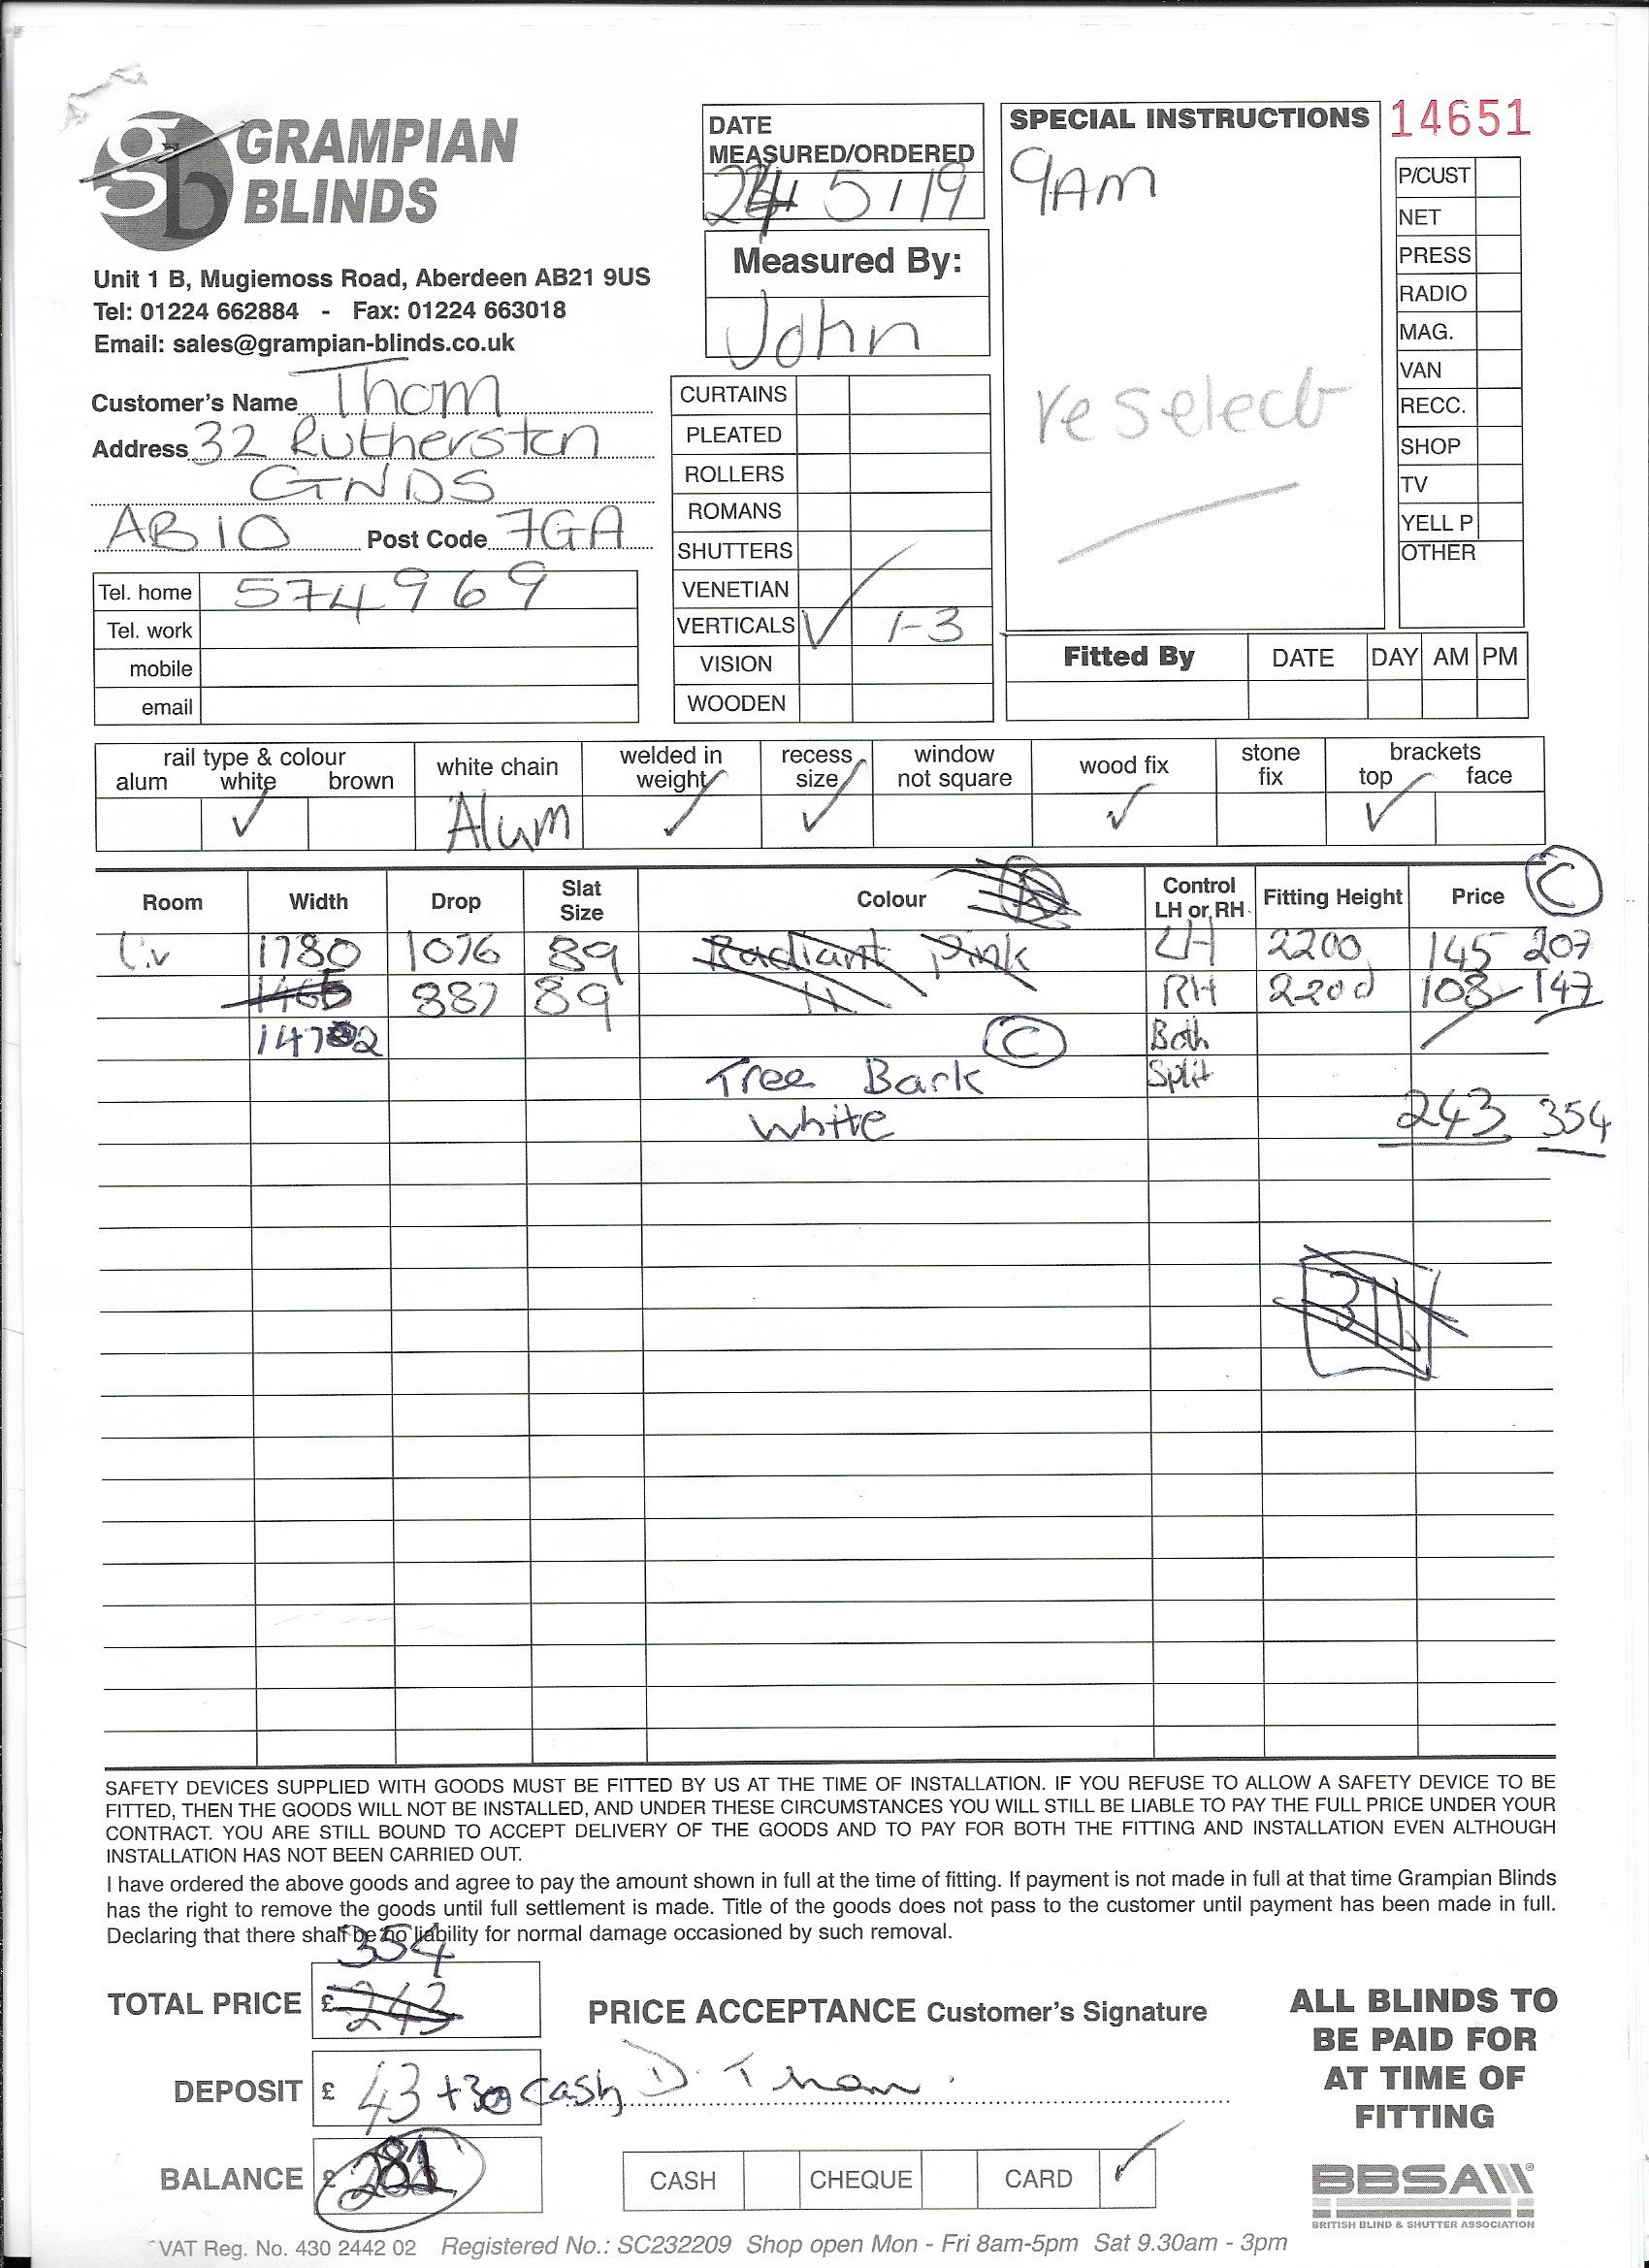 GRAMPIAN
BLINDS
Unit 1 B, Mugiemoss Road, Aberdeen AB21 9US
Tel: 01224 662884 - Fax: 01224 663018
Email: sales@grampian-blinds.co.uk
Customer's Name Thom
Address 32 Rutherston
GNDS
AB10 Post Code 7GA
Tel. home 574969
Tel. work
mobile
email
DATE
MEASURED/ORDERED
5/19
Measured By:
John
CURTAINS
PLEATED
ROLLERS
ROMANS
SHUTTERS
VENETIAN
VERTICALS ✓ 1-3
VISION
WOODEN
SPECIAL INSTRUCTIONS
9AM
reselect
14651
P/CUST
NET
PRESS
RADIO
MAG.
VAN
RECC.
SHOP
TV
YELL P
OTHER
Fitted By DATE DAY AM PM
rail type & colour
alum white brown
✓
white chain
Alum
welded in
weight
✓
recess
size
✓
window
not square
wood fix
✓
stone
fix
brackets
top face
✓
Room Width Drop Slat Size Colour Control LH or RH Fitting Height Price C
Liv 1780 1076 89 Radiant Pink LH 2200 145 207
887 89 11 RH 2200 108 147
C Both
Tree Bark Split
White 243 354
311
SAFETY DEVICES SUPPLIED WITH GOODS MUST BE FITTED BY US AT THE TIME OF INSTALLATION. IF YOU REFUSE TO ALLOW A SAFETY DEVICE TO BE
FITTED, THEN THE GOODS WILL NOT BE INSTALLED, AND UNDER THESE CIRCUMSTANCES YOU WILL STILL BE LIABLE TO PAY THE FULL PRICE UNDER YOUR
CONTRACT. YOU ARE STILL BOUND TO ACCEPT DELIVERY OF THE GOODS AND TO PAY FOR BOTH THE FITTING AND INSTALLATION EVEN ALTHOUGH
INSTALLATION HAS NOT BEEN CARRIED OUT.
I have ordered the above goods and agree to pay the amount shown in full at the time of fitting. If payment is not made in full at that time Grampian Blinds
has the right to remove the goods until full settlement is made. Title of the goods does not pass to the customer until payment has been made in full.
Declaring that there shall be no liability for normal damage occasioned by such removal.
354
TOTAL PRICE £ 243
PRICE ACCEPTANCE Customer's Signature
DEPOSIT £ 43 +30 Cash D. Thom
BALANCE £ 281
CASH CHEQUE CARD ✓
ALL BLINDS TO
BE PAID FOR
AT TIME OF
FITTING
BBSA
BRITISH BLIND & SHUTTER ASSOCIATION
VAT Reg. No. 430 2442 02 Registered No.: SC232209 Shop open Mon - Fri 8am-5pm Sat 9.30am - 3pm